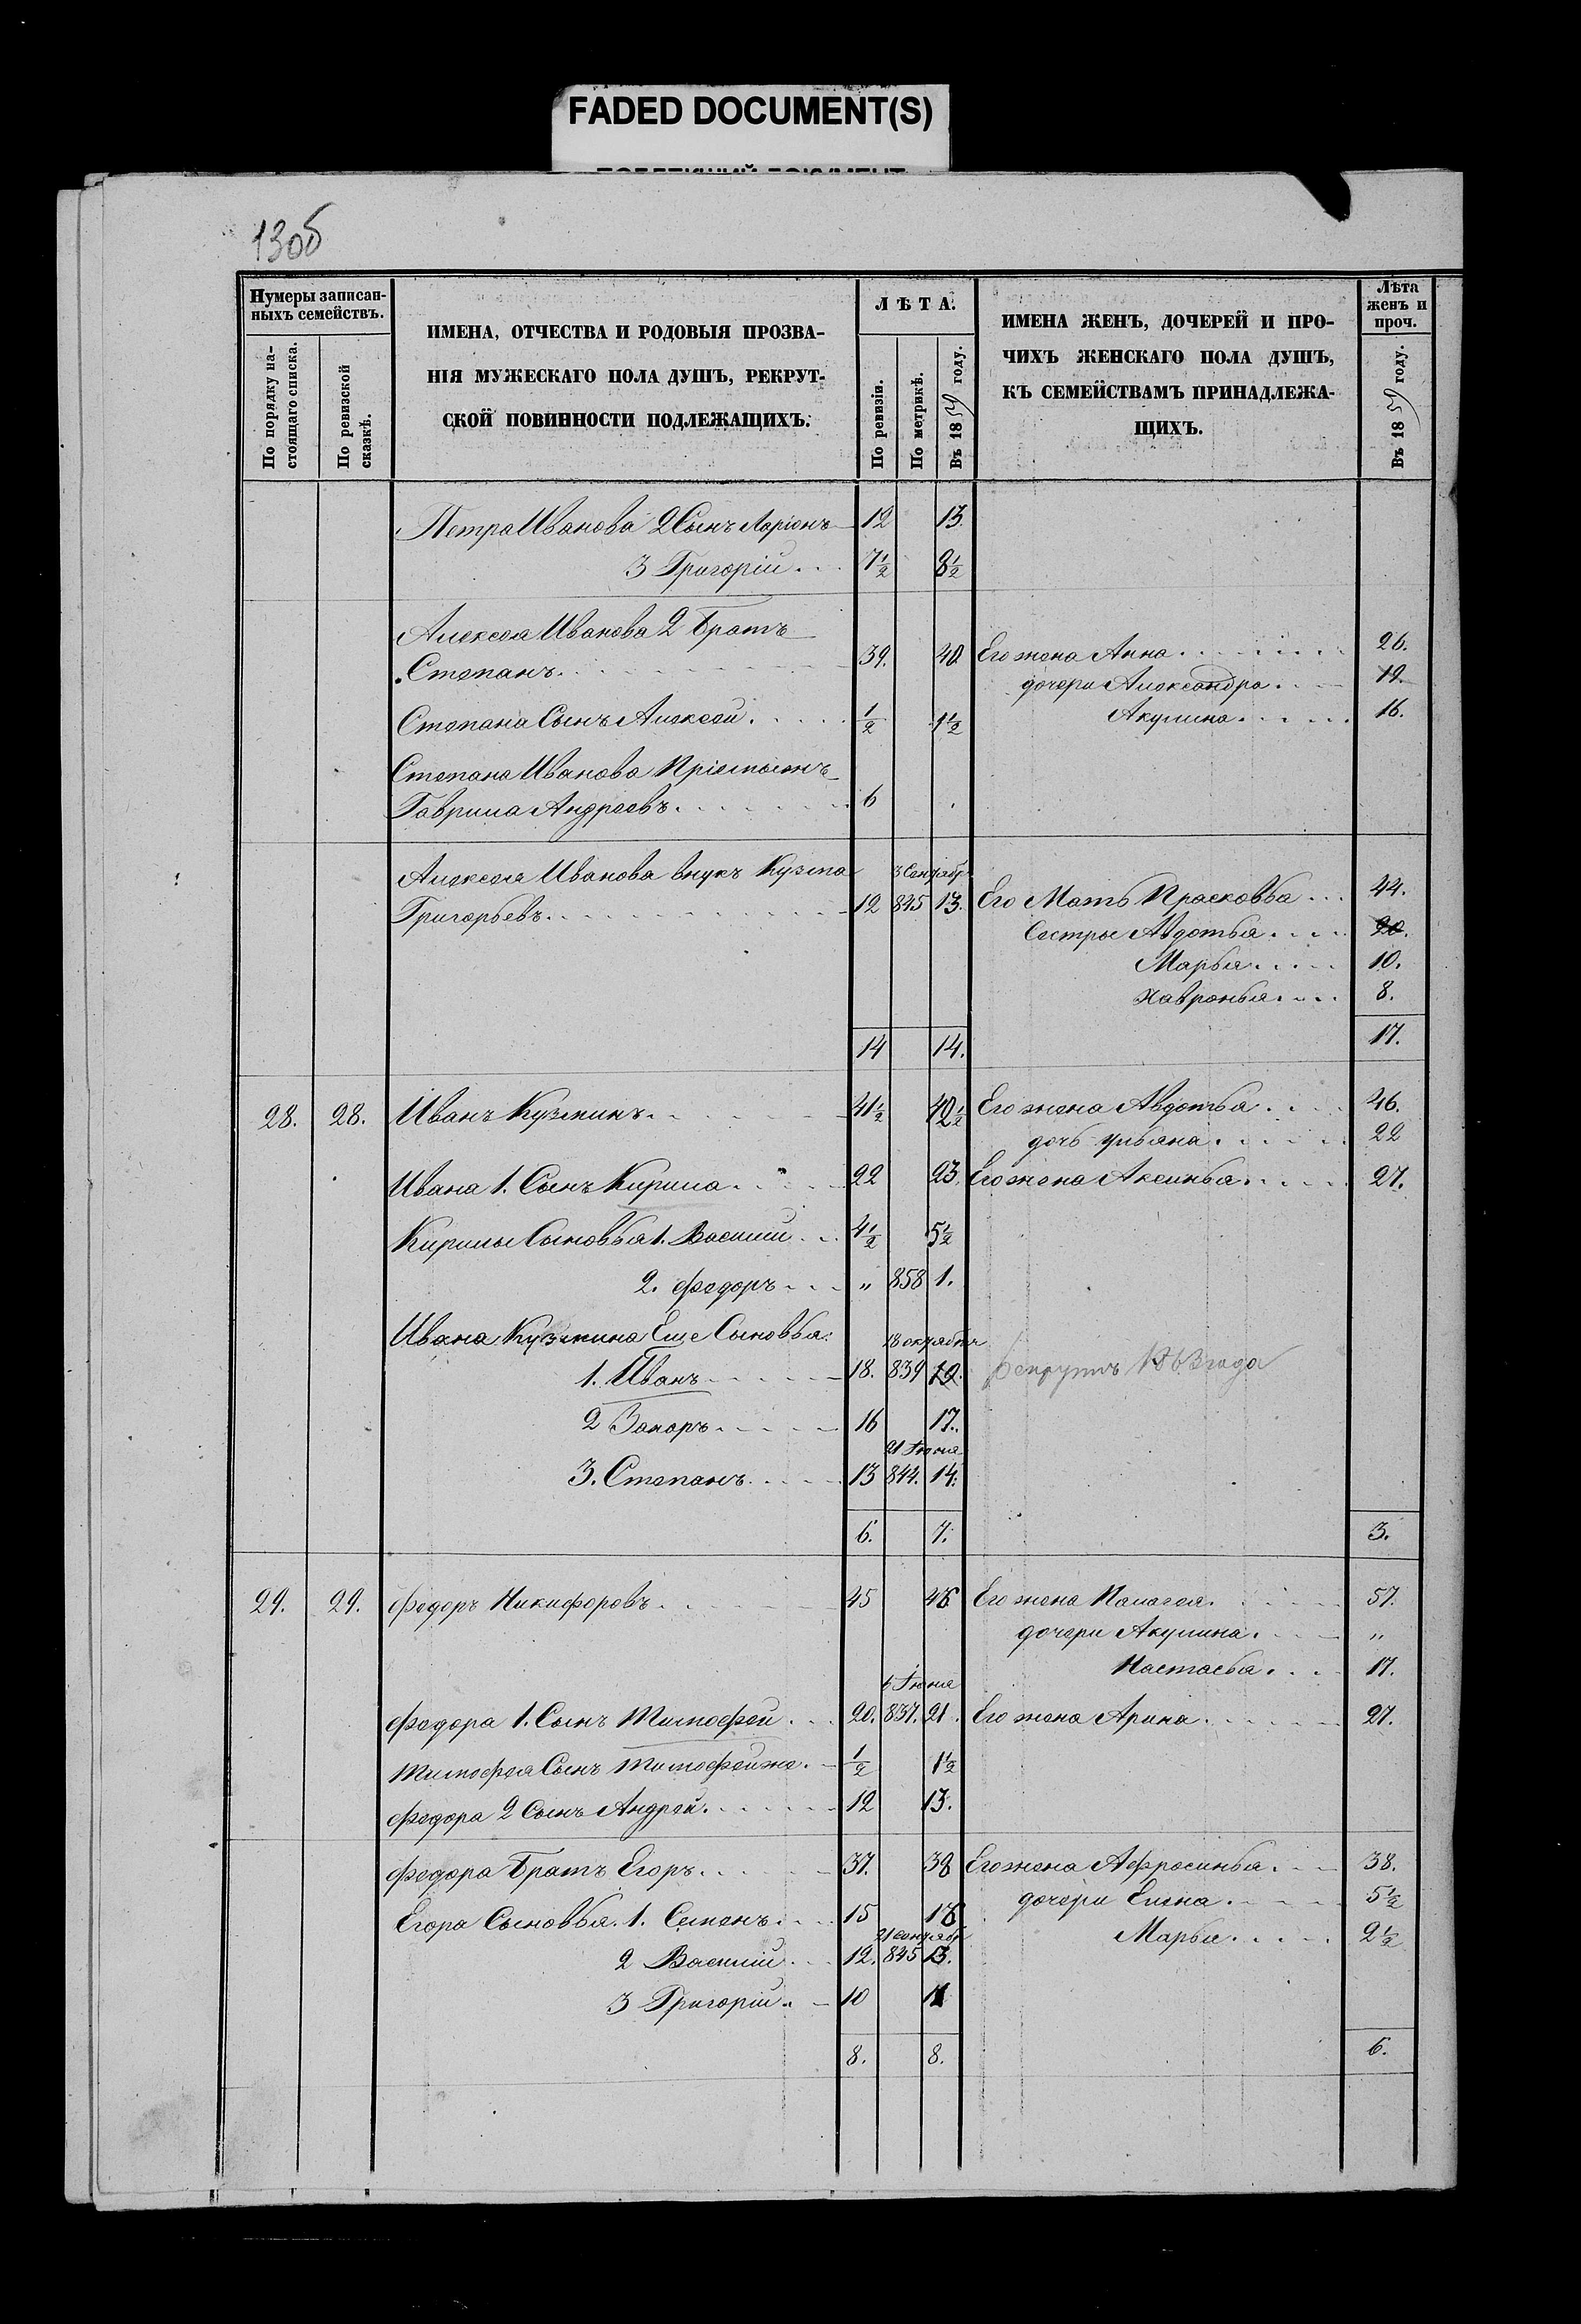 FADED DOCUMENT(S)
13об
Нумеры записан-
ныхъ семействъ.
По порядку на-
стоящаго списка.
По ревизской
сказкѣ.
ИМЕНА, ОТЧЕСТВА И РОДОВЫЯ ПРОЗВА-
НІЯ МУЖЕСКАГО ПОЛА ДУШЪ, РЕКРУТ-
СКОЙ ПОВИННОСТИ ПОДЛЕЖАЩИХЪ.
ЛѢТА.
По ревизіи.
По метрикѣ.
Въ 1859 году.
ИМЕНА ЖЕНЪ, ДОЧЕРЕЙ И ПРО-
ЧИХЪ ЖЕНСКАГО ПОЛА ДУШЪ,
КЪ СЕМЕЙСТВАМЪ ПРИНАДЛЕЖА-
ЩИХЪ.
Лѣта
женъ и
проч.
Въ 1859 году.
Петра Иванова 2 Сынъ Ларіонъ 12 13.
3 Григорій . . . 7½ 8½
Алексея Иванова 2 Братъ
Степанъ. 39. 40 Его жена Анна . . . 26.
дочери Александра . . . 19.
Степана Сынъ Алексей . . . ½ 1½ Акулина . . . 16.
Степана Иванова Пріемышъ
Гаврила Андреевъ . . . 6
Алексея Иванова внукъ Кузма 3 Сентябр
Григорьевъ . . . 12 845 13. Его Мать Прасковья . . . 44.
Сестры Авдотья . . . 20.
Марья . . . 10.
Хавронья . . . 8.
14 14. 17.
28. 28. Иванъ Кузминъ . . . 41½ 42½ Его жена Авдотья . . . 46.
дочь Ульяна . . . 22
Ивана 1. Сынъ Кирила . . . 22 23. Его жена Аксинья . . . 27.
Кирилы Сыновья 1. Василий . . . 4½ 5½
2. Федоръ . . . „ 858 1.
Ивана Кузмина Еще Сыновья: 18 октября
1. Иванъ . . . 18. 839 19. рекрутъ 1863 года
2 Захаръ . . . 16 17.
21 Июня
3. Степанъ . . . 13 844. 14.
6. 7. 3.
29. 29. Федоръ Никифоровъ . . . 45 46 Его жена Палагея . . . 57.
дочери Акулина . . . „
Настасья . . . 17.
6 Июня
Федора 1. Сынъ Тимофей . . . 20. 837. 21. Его жена Арина . . . 27.
Тимофея Сынъ Тимофейже . . . ½ 1½
Федора 2 Сынъ Андрей . . . 12 13.
Федора Братъ Егоръ . . . 37. 38 Его жена Афросинья . . . 38.
дочери Елена . . . 5½
Егора Сыновья. 1. Семенъ . . . 15 16
21 сентябр Марья . . . 2½
2 Василий . . . 12. 845 13.
3 Григорій . . . 10 11
8. 8. 6.